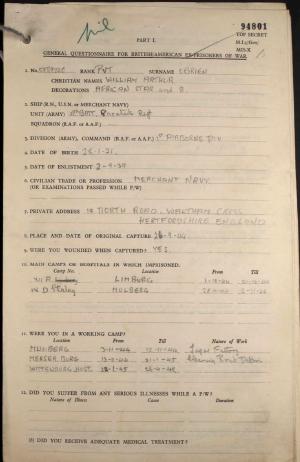 nil
94801
TOP SECRET
M.I.9/Gen/
MIS-X
PART I.
GENERAL QUESTIONNAIRE FOR BRITISH/AMERICAN EX-PRISONERS OF WAR
1. No. RANK PVT SURNAME O'BRIEN
CHRISTIAN NAMES WILLIAM ARTHUR
DECORATIONS AFRICAN STAR and 8.
2. SHIP (R.N., U.S.N. or MERCHANT NAVY)
UNIT (ARMY) BATT. Parachute Reg
SQUADRON (R.A.F. or A.A.F.)
3. DIVISION (ARMY), COMMAND (R.A.F. or A.A.F.) 1st AIRBORNE DIV
4. DATE OF BIRTH 28-1-21.
5. DATE OF ENLISTMENT 2-9-39
6. CIVILIAN TRADE OR PROFESSION MERCHANT NAVY.
(OR EXAMINATIONS PASSED WHILE P/W)
7. PRIVATE ADDRESS NORTH ROAD. WALTHAM CROSS
HERTFORDSHIRE ENGLAND
8. PLACE AND DATE OF ORIGINAL CAPTURE -9-44
9. WERE YOU WOUNDED WHEN CAPTURED? YES
10. MAIN CAMPS OR HOSPITALS IN WHICH IMPRISONED.
Camp No. Location From Till
XII A LIMBURG
IV D MULBERG
11. WERE YOU IN A WORKING CAMP?
Location From Till Nature of Work
MULBERG 3-11-44 12-11-44 Factory
MERSERBURG
WITTENBURG HOST.
12. DID YOU SUFFER FROM ANY SERIOUS ILLNESSES WHILE A P/W?
Nature of Illness Cause Duration
(b) DID YOU RECEIVE ADEQUATE MEDICAL TREATMENT?